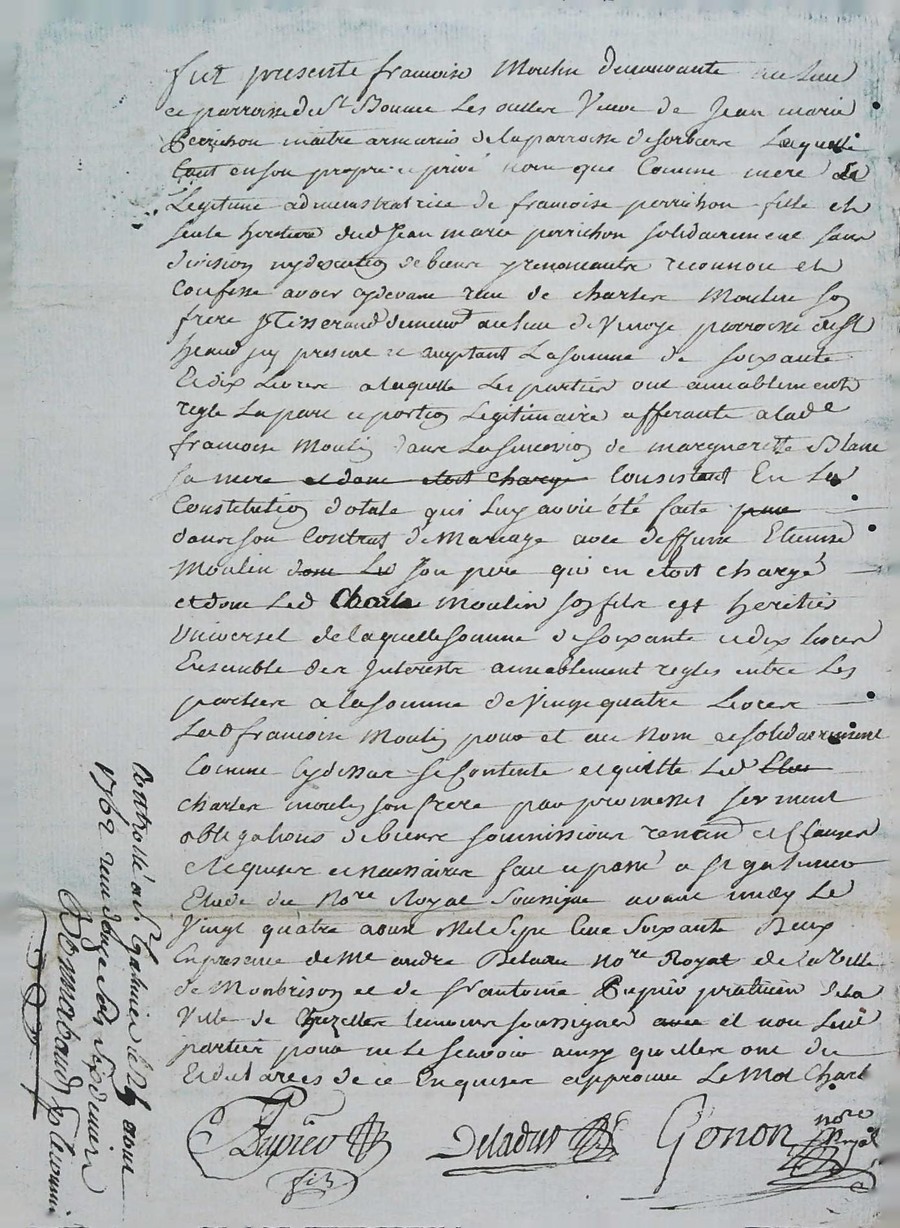 fut presente francoise Moulin demeurante au lieu
et parroisse de St Bonnet Les oulles Veuve de Jean marie
Perrichon maitre armurié de la parroisse de sorbiere Laquelle
tant en son propre et privé nom que Comme mere et
Legitime administratrice de francoise perrichon fille et
seule heritiere dud Jean marie perrichon solidairement sans
division ny discution de biens y renoncantre reconnoit et
Confesse avoir cydevant recu de charles Moulin son
frere tisserand demeurt au lieu de parroisse de st
heand icy present et acceptant La somme de soixante
Et dix Livres a laquelle Les parties ont amiablement
regle La part et portion Legitimaire afferante a lade
francoise Moulin dans La succession de marguerette Blanc
sa mere et dont etoit charge Consistant En La
Constitution dotale qui Luy avoit été faite pour
dans son Contrat de Mariage avec deffunt Etienne
Moulin dont Led son pere qui en etoit chargé
et dont Led Charle Moulin son fils est heritié
Universel de laquelle somme de soixante et dix livres
Ensemble des Interests amiablement regles entre Les
parties a la somme de Vingt quatre Livres
Lad francoise Moulin pour et au Nom et solidairement
Comme Cydessus se Contente et quitte Led
charles moulin son frere par promesses serment
obligations de biens soumissions renond et Clauses
Requises et necessaires fait et passé a st galmier
Etude du Nore Royal Soussigne avant midy Le
Vingt quatre aoust Mil Sept Cent Soixante Deux
En presence de Me andré Deladue nore Royal de la Ville
de Monbrison et de Sr antoine Dupuy praticien de la
Ville de Chazelles temoins soussignes avec et non Lesd
parties pour ne Le scavoir ainsy quelles ont dit
Et declarees de ce Enquises approuve Le Mot Charl
fils
Gonon nore Royal
Controllé a St Galmier le 25 aoust
1762 recu douze sols six deniers